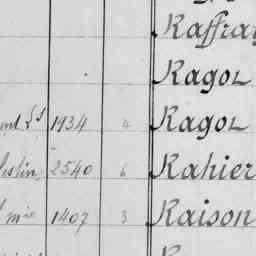 Raffray
Ragol
1934 4 Ragol
2540 6 Rahier
mie 1407 3 Raison